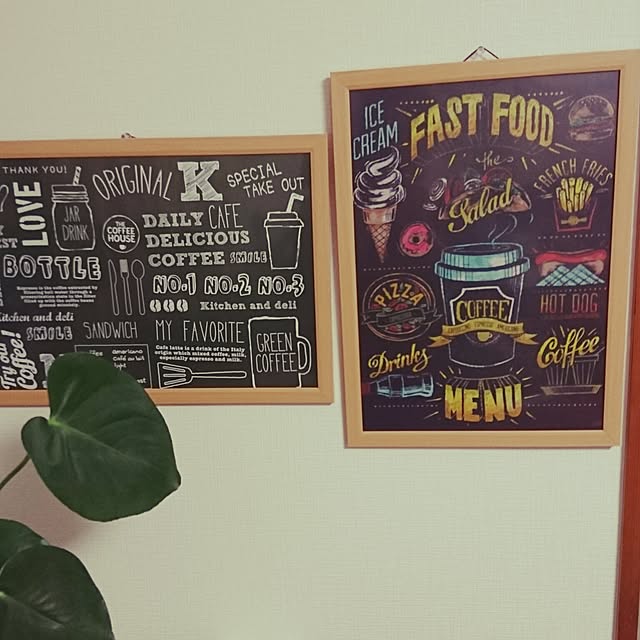 THANK YOU!
LOVE
JAR
DRINK
ORIGINAL K
SPECIAL
TAKE OUT
THE
COFFEE
HOUSE
DAILY CAFE
DELICIOUS
COFFEE SMILE
BOTTLE
NO.1 NO.2 NO.3
Kitchen and deli
Kitchen and deli
SMILE
SANDWICH
Try our
Coffee!
americano
MY FAVORITE
Cafe latte is a drink of the Italy
origin which mixed coffee, milk,
especially espresso and milk.
GREEN
COFFEE
ICE
CREAM
FAST FOOD
the
Salad
FRENCH FRIES
PIZZA
COFFEE
HOT DOG
Drinks
Coffee
MENU